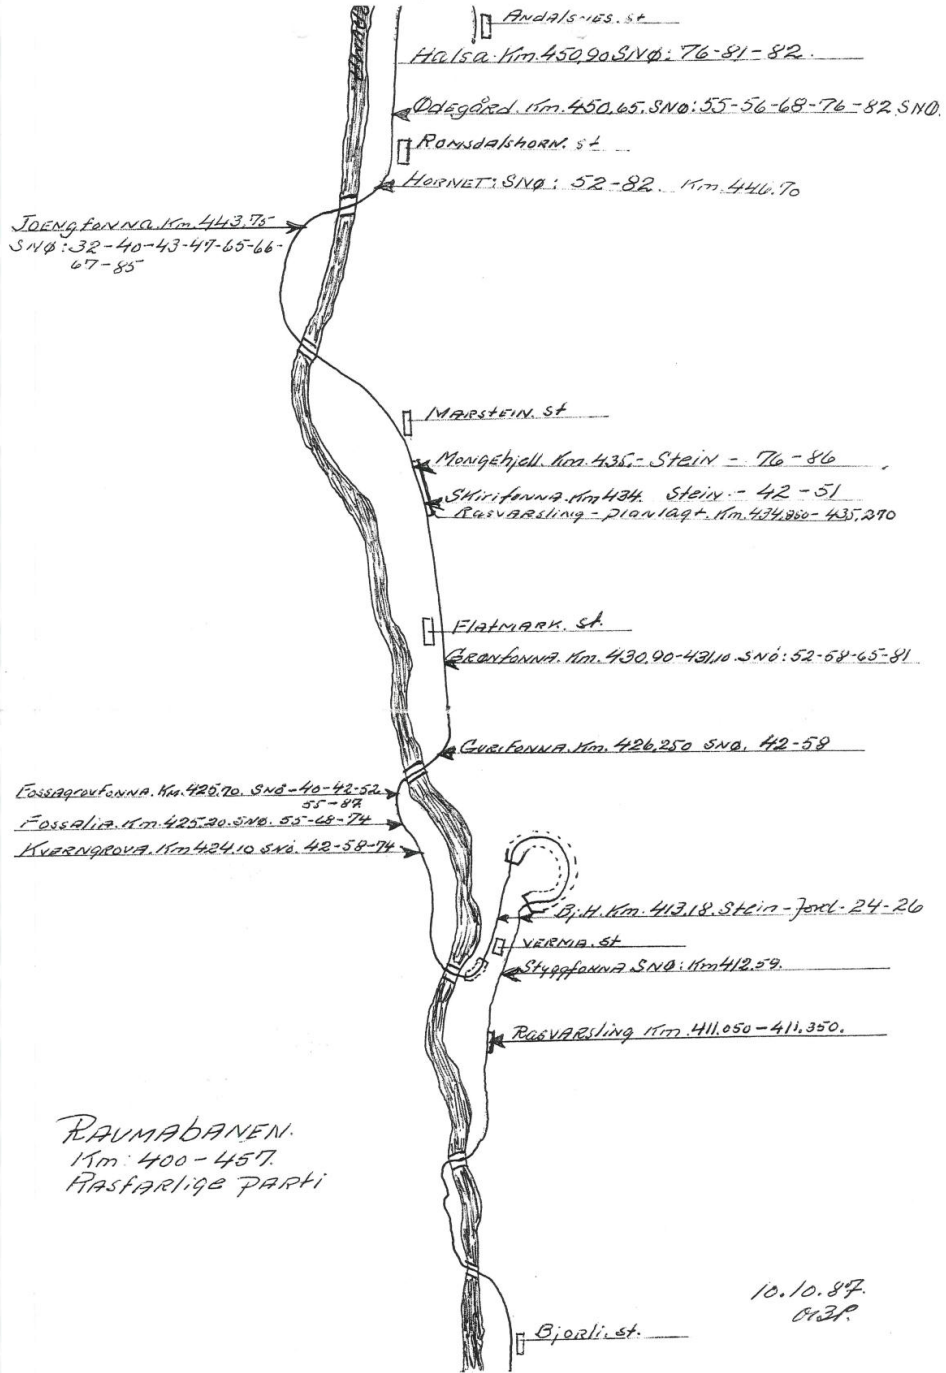 Åndalsnes. st
Halsa. Km. 450,90 SNØ: 76-81-82.
Ødegård. Km. 450,65. SNØ: 55-56-68-76-82 SNØ.
Romsdalshorn. st
HORNET: SNØ: 52-82. Km. 446.70
Joengfonna. Km. 443.75
SNØ: 32-40-43-47-65-66-
67-85
Marstein. st
Mongehjell. Km. 435,- Stein - 76-86
Skirifonna. Km 434. Stein - 42-51
Rasvarsling - planlagt. Km. 434,850- 435,270
Flatmark. st.
Grønfonna. Km. 430,90-431,10. SNØ: 52-58-65-81
Gurifonna. Km. 426,250 SNØ. 42-58
Fossagrovfonna. Km. 425.70. SNØ-40-42-52
55-87
Fossalia. Km. 425.20. SNØ. 55-68-74
Kverngrova. Km 424.10 SNØ. 42-58-74
Bj.H. Km. 413,18. Stein-Jord-24-26
VERMA. st
Styggfonna SNØ: Km 412,59.
Rasvarsling Km. 411.050-411.350.
RAUMABANEN.
Km: 400-457.
Rasfarlige parti
10.10.87.
Bjorli. st.